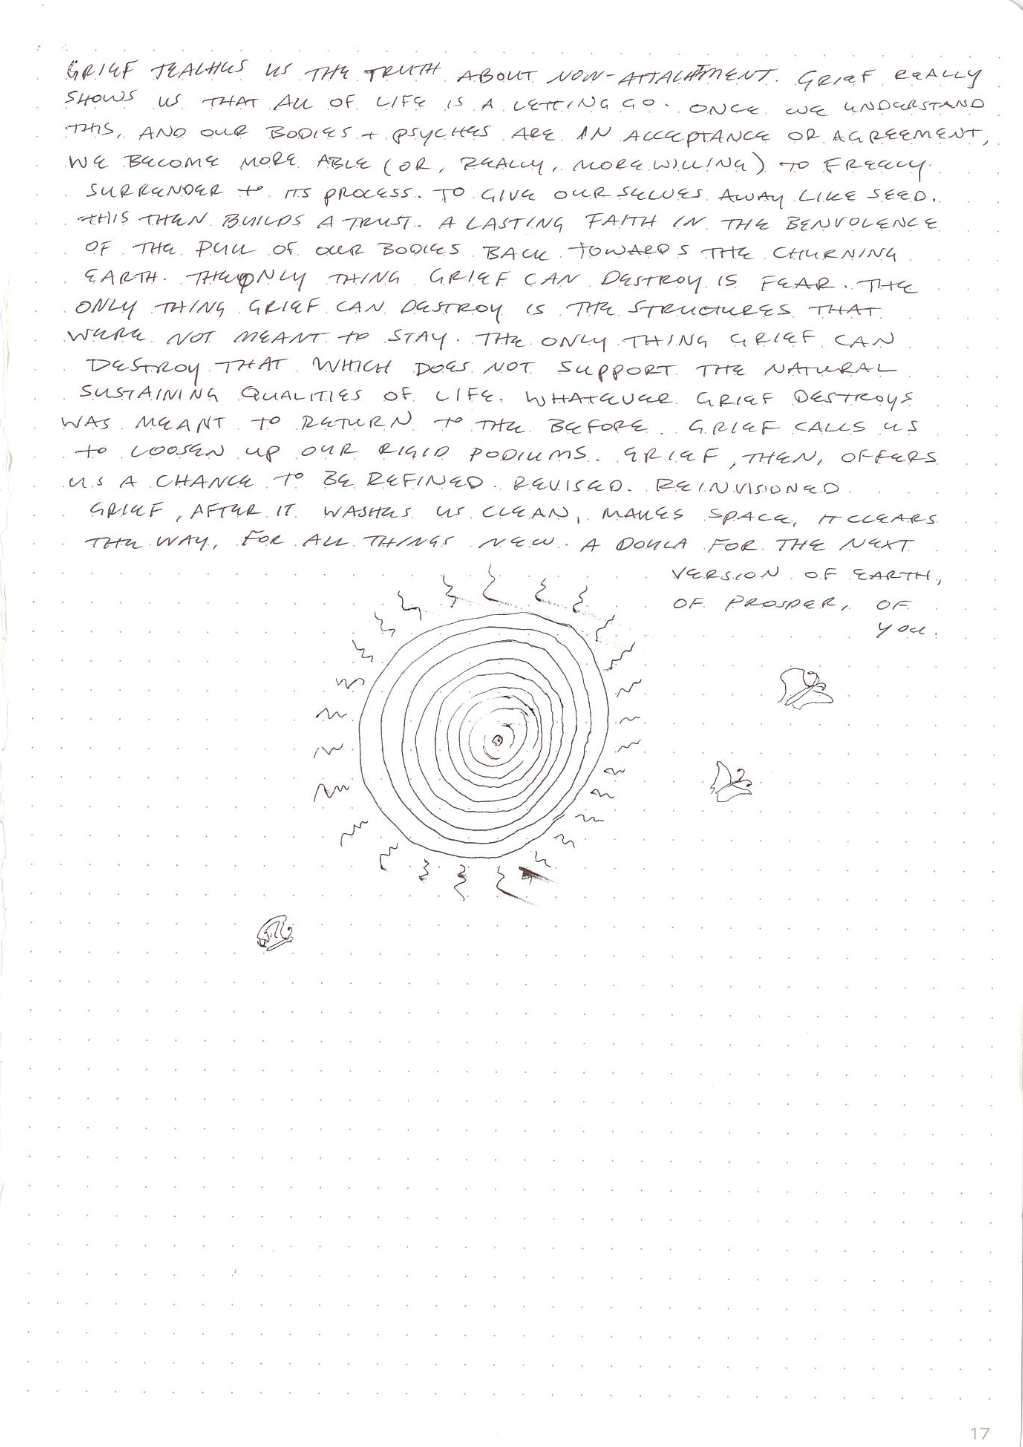 GRIEF TEACHES US THE TRUTH ABOUT NON-ATTACHMENT. GRIEF REALLY
SHOWS US THAT ALL OF LIFE IS A LETTING GO. ONCE WE UNDERSTAND
THIS, AND OUR BODIES + PSYCHES ARE IN ACCEPTANCE OR AGREEMENT,
WE BECOME MORE ABLE (OR, REALLY, MORE WILLING) TO FREELY
SURRENDER to ITS PROCESS. TO GIVE OURSELVES AWAY LIKE SEED.
THIS THEN BUILDS A TRUST. A LASTING FAITH IN THE BENVOLENCE
OF THE PULL OF OUR BODIES BACK TOWARDS THE CHURNING
EARTH. THE ONLY THING GRIEF CAN DESTROY IS FEAR. THE
ONLY THING GRIEF CAN DESTROY IS THE STRUCTURES THAT
WERE NOT MEANT to STAY. THE ONLY THING GRIEF CAN
DESTROY THAT WHICH DOES NOT SUPPORT THE NATURAL
SUSTAINING QUALITIES OF LIFE. WHATEVER GRIEF DESTROYS
WAS MEANT TO RETURN TO THE BEFORE. GRIEF CALLS US
to LOOSEN UP OUR RIGID PODIUMS. GRIEF, THEN, OFFERS
US A CHANCE TO BE REFINED. REVISED. REINVISIONED
GRIEF, AFTER IT WASHES US CLEAN, MAKES SPACE, IT CLEARS
THE WAY, FOR ALL THINGS NEW. A DOULA FOR THE NEXT
VERSION OF EARTH,
OF PROSPER, OF
YOU.
17